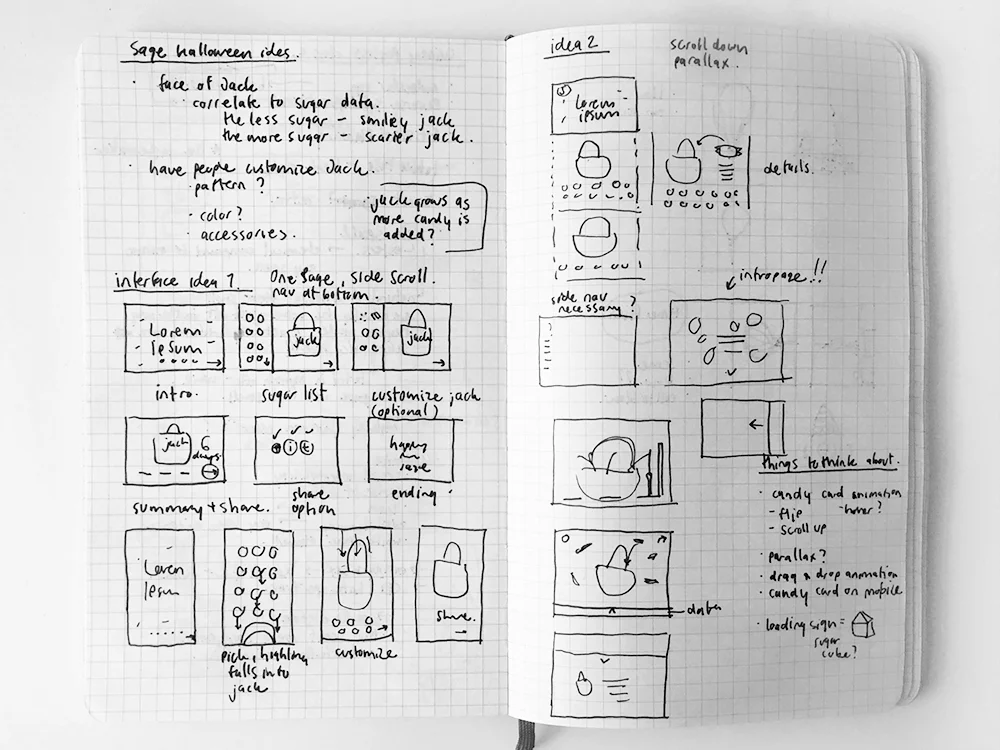 Sage halloween ides.
· face of Jack
· correlate to sugar data.
the less sugar - smiley jack
the more sugar - scarier jack.
· have people customize Jack.
· pattern?
· color?
· accessories.
jack grows as
more candy is
added?
interface idea 1.
One page, side scroll.
nav at bottom.
Lorem
Ipsum
jack
jack
intro.
sugar list
customize jack
(optional)
jack
6
days
t
happy
summary + share.
share
option
ending
Lorem
Ipsum
share.
pick,
falls into
jack
customize
idea 2
scroll down
parallax.
Lorem
ipsum
details.
side nav
necessary?
intropage!!
data
things to think about.
· candy card animation
- flip - hover?
- scroll up
· parallax?
· drag n drop animation
· candy card on mobile
· loading sign =
sugar
cube?